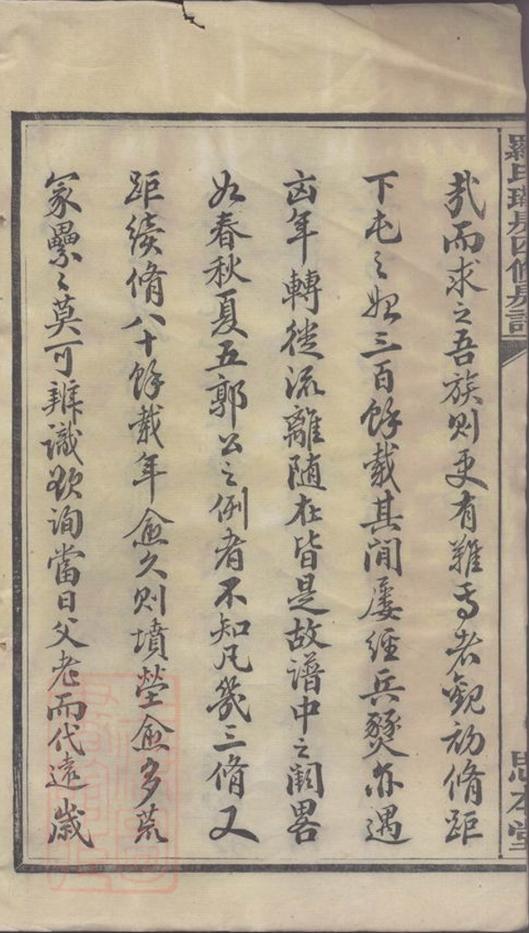 哉而求之吾族則更有難焉者觀初脩距
下屯之始三百餘載其間屢經兵燹亦遇
凶年轉徙流離隨在皆是故譜中之闕畧
如春秋夏五郭公之例者不知凡幾三脩又
距續脩八十餘載年愈久則墳塋愈多荒
冢纍〻莫可辨識欲詢當日父老而代遠歲
思本堂